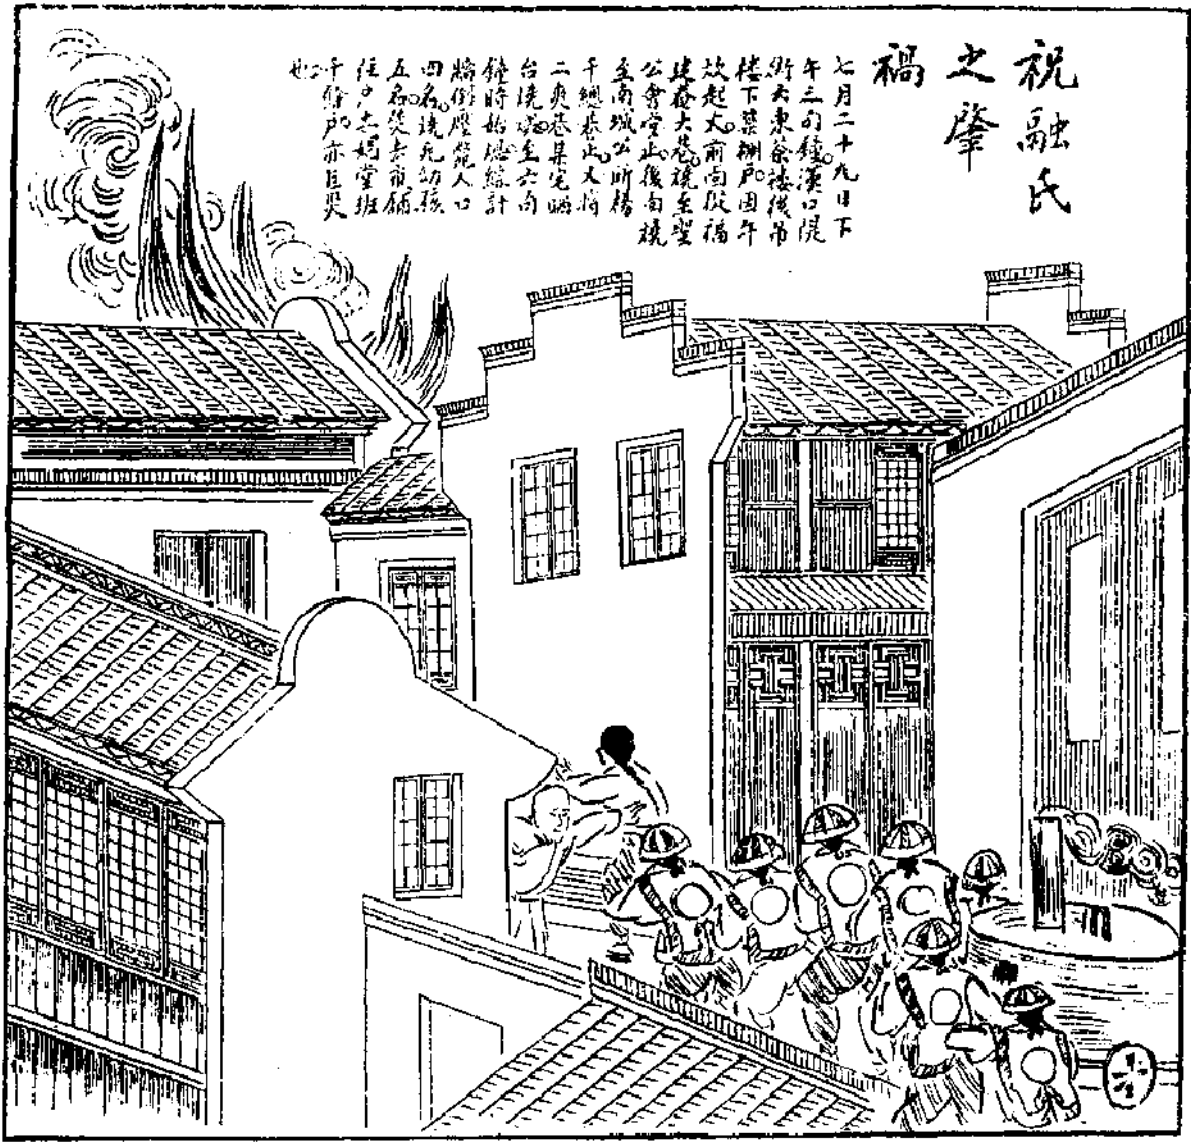 祝融氏
之肇
禍
七月二十九日下
午三句鐘漢口隄
街大東谷楼後吊
楼下蔡棚戶因午
炊起火前面從福
建菴大巷燒至聖
公會堂止後面燒
至南城公所楊
千總巷止又將
二爽巷某宅晒
台燒燬至六句
鐘時始熄綜計
牆倒壓斃人口
四名燒死幼孩
五名焚去市鋪
住戶娼堂班
千餘戶亦巨災
也